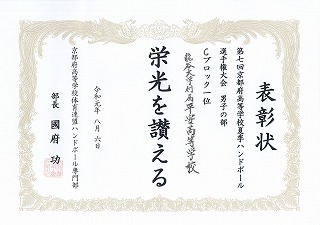 表彰状
第七回京都府高等学校夏季ハンドボール
選手権大会 男子の部
Cブロック一位
龍谷大学付属平安高等学校
栄光を讃える
令和元年八月六日
京都府高等学校体育連盟ハンドボール専門部
部長 國府 功